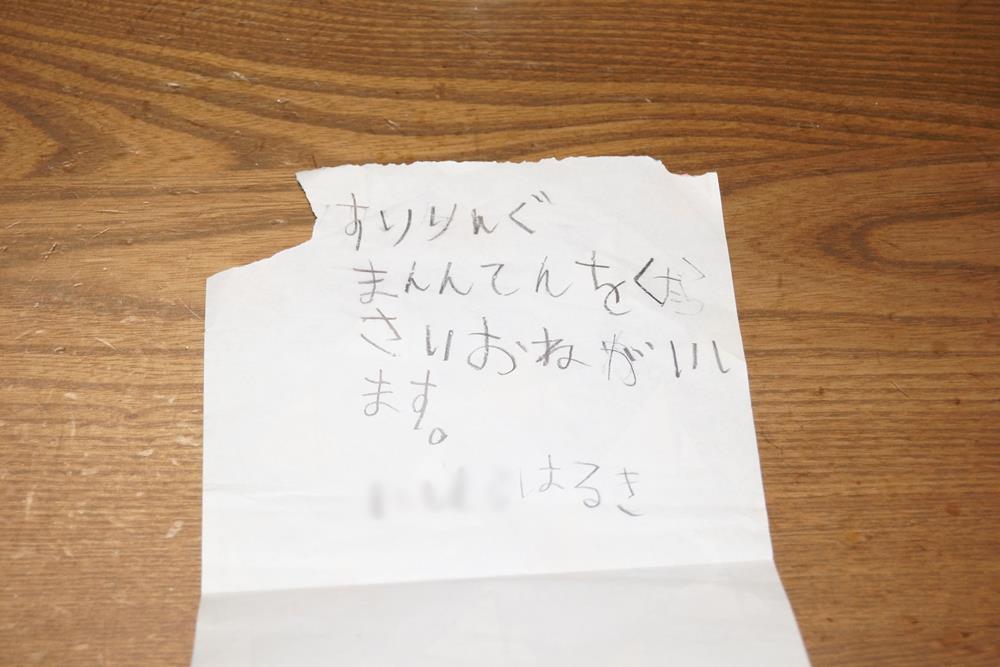 すりりんぐ
まんんてんをくだ
さいおねがいし
ます。
はるき